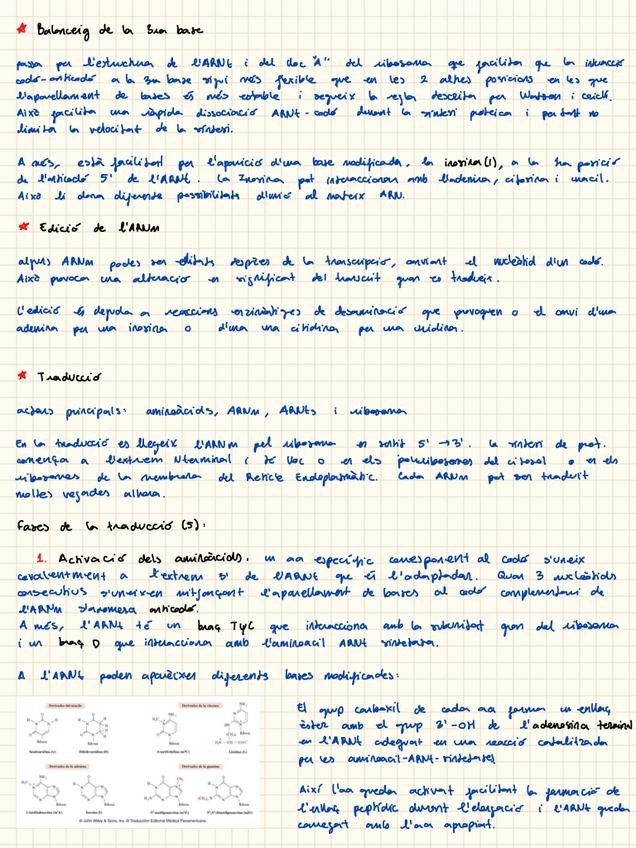 * Balanceig de la 3ra base
passa per l'estructura de l'ARNt i del lloc "A" del ribosoma que facilita que la interacció
codó-anticodó a la 3ra base sigui més flexible que en les 2 altres posicions en les que
l'aparellament de bases és més estable i segueix la regla descrita per Watson i Crick.
Això facilita una ràpida dissociació ARNt-codó durant la síntesi proteica i per tant no
limita la velocitat de la síntesi.
A més, està facilitat per l'aparició d'una base modificada, la inosina (I), a la 1ra posició
de l'anticodó 5' de l'ARNt. La Inosina pot interaccionar amb l'adenina, citosina i uracil.
Això li dona diferents possibilitats d'unió al mateix ARN.
* Edició de l'ARNm
alguns ARNm poden ser editats després de la transcripció, canviant el nucleòtid d'un codó.
Això provoca una alteració en significat del transcrit quan es tradueix.
L'edició és deguda a reaccions enzimàtiques de desaminació que provoquen o el canvi d'una
adenina per una inosina o d'una una citidina per una uridina.
* Traducció
actors principals: aminoàcids, ARNm, ARNts i ribosoma
En la traducció es llegeix l'ARNm pel ribosoma en sentit 5' → 3'. la síntesi de prot.
comença a l'extrem N terminal i té lloc o en els poliribosomes del citosol o en els
ribosomes de la membrana del Reticle Endoplasmàtic. Cada ARNm pot ser traduït
moltes vegades alhora.
Fases de la traducció (5):
1. Activació dels aminoàcids. un aa específic corresponent al codó s'uneix
covalentment a l'extrem 3' de l'ARNt que és l'adaptador. Quan 3 nucleòtids
consecutius s'uneixen mitjançant l'aparellament de bases al codó complementari de
l'ARNm s'anomena anticodó.
A més, l'ARNt té un braç TψC que interacciona amb la subunitat gran del ribosoma
i un braç D que interacciona amb l'aminoacil ARNt sintetasa.
A l'ARNt poden aparèixer diferents bases modificades:
Derivados del uracilo
Derivados de la citosina
Derivados de la adenina
Derivados de la guanina
© John Wiley & Sons, Inc. ® Traducción Editorial Médica Panamericana
El grup carboxil de cada aa forma un enllaç
èster amb el grup 3'-OH de l'adenosina terminal
en l'ARNt adequat en una reacció catalitzada
per les aminoacil-ARNt-sintetases
Així l'aa queda activat facilitant la formació de
l'enllaç peptídic durant l'elongació i l'ARNt queda
carregat amb l'aa apropiat.